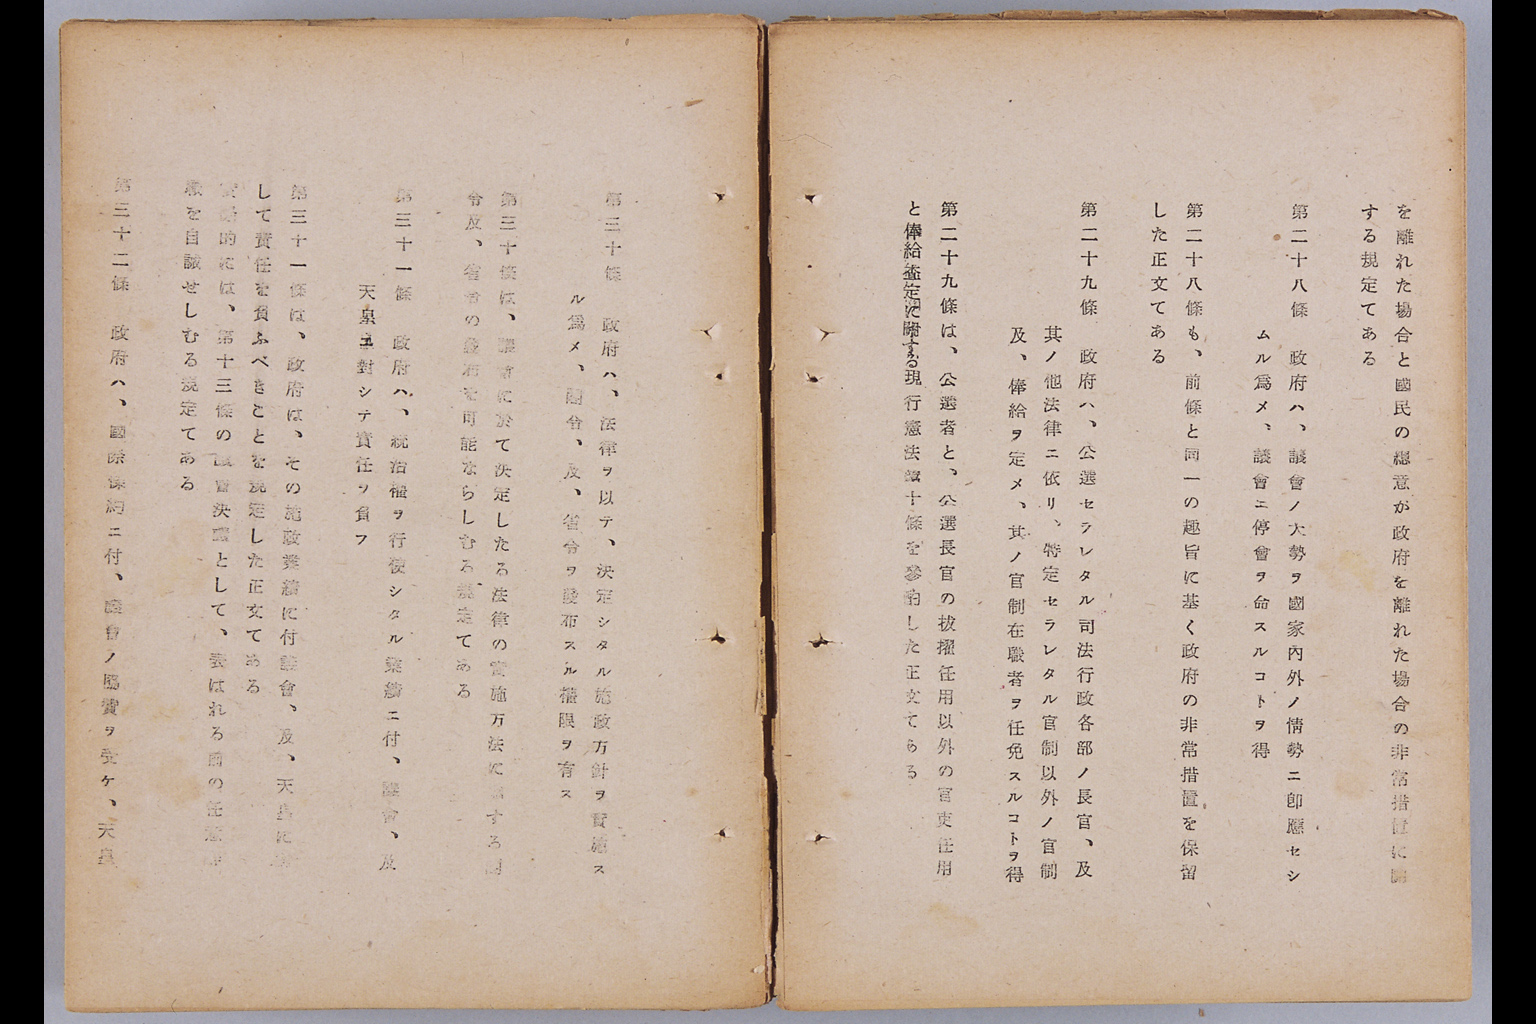 を離れた場合と國民の總意が政府を離れた場合の非常措置に關
する規定てある
第二十八條　政府ハ、議會ノ大勢ヲ國家內外ノ情勢ニ卽應セシ
ムル爲メ、議會ニ停會ヲ命スルコトヲ得
第二十八條も、前條と同一の趣旨に基く政府の非常措置を保留
した正文てある
第二十九條　政府ハ、公選セラレタル司法行政各部ノ長官、及
其ノ他法律ニ依リ、特定セラレタル官制以外ノ官制
及、俸給ヲ定メ、其ノ官制在職者ヲ任免スルコトヲ得
第二十九條は、公選者と、公選長官の拔擢任用以外の官吏任用
と俸給査定に關する現行憲法第十條を參酌した正文てある
第三十條　政府ハ、法律ヲ以テ、決定シタル施政方針ヲ實施ス
ル爲メ、閣令、及、省令ヲ發布スル權限ヲ有ス
第三十條は、議會に於て決定したる法律の實施方法に關する閣
令及、省令の發布を可能ならしむる規定てある
第三十一條　政府ハ、統治權ヲ行使シタル業績ニ付、議會、及
天皇ニ對シテ責任ヲ負フ
第三十一條は、政府は、その施政業績に付議會、及、天皇に對
して責任を負ふべきことを規定した正文てある
的には、第十三條の議會決議として、表はれる
を自誡せしむる規定てある
第三十二條　政府ハ、國際條約ニ付、議會ノ協贊ヲ受ケ、天皇